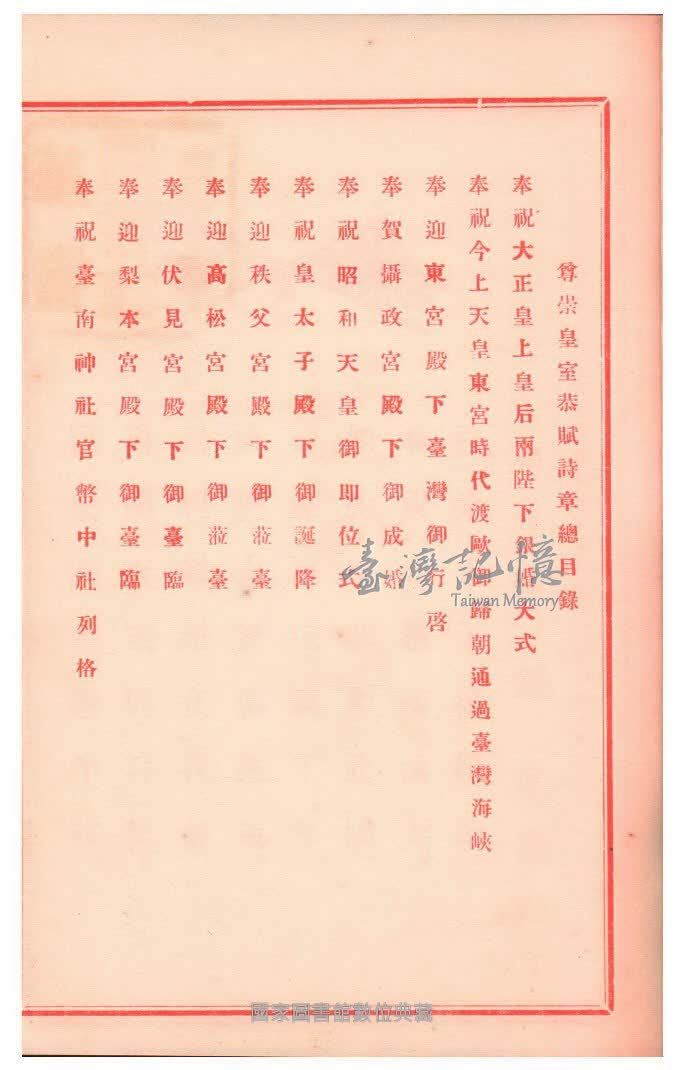 尊崇皇室恭賦詩章總目錄
奉祝大正皇上皇后兩陛下銀婚大式
奉祝今上天皇東宮時代渡歐御歸朝通過臺灣海峽
奉迎東宮殿下臺灣御行啓
奉賀攝政宮殿下御成婚
奉祝昭和天皇御即位式
奉祝皇太子殿下御誕降
奉迎秩父宮殿下御蒞臺
奉迎高松宮殿下御蒞臺
奉迎伏見宮殿下御臺臨
奉迎梨本宮殿下御臺臨
奉祝臺南神社官幣中社列格
臺灣記憶
Taiwan Memory
國家圖書館數位典藏